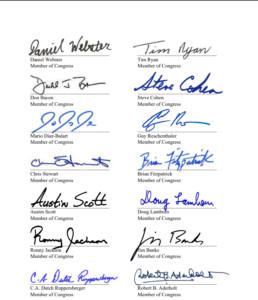 Daniel Webster
Tim Ryan
Daniel Webster
Member of Congress
Tim Ryan
Member of Congress
Steve Cohen
Don Bacon
Member of Congress
Steve Cohen
Member of Congress
Mario Diaz-Balart
Member of Congress
Guy Reschenthaler
Member of Congress
Brian Fitzpatrick
Chris Stewart
Member of Congress
Brian Fitzpatrick
Member of Congress
Austin Scott
Doug Lamborn
Austin Scott
Member of Congress
Doug Lamborn
Member of Congress
Ronny Jackson
Jim Banks
Ronny Jackson
Member of Congress
Jim Banks
Member of Congress
C.A. Dutch Ruppersberger
Robert B. Aderholt
C.A. Dutch Ruppersberger
Member of Congress
Robert B. Aderholt
Member of Congress